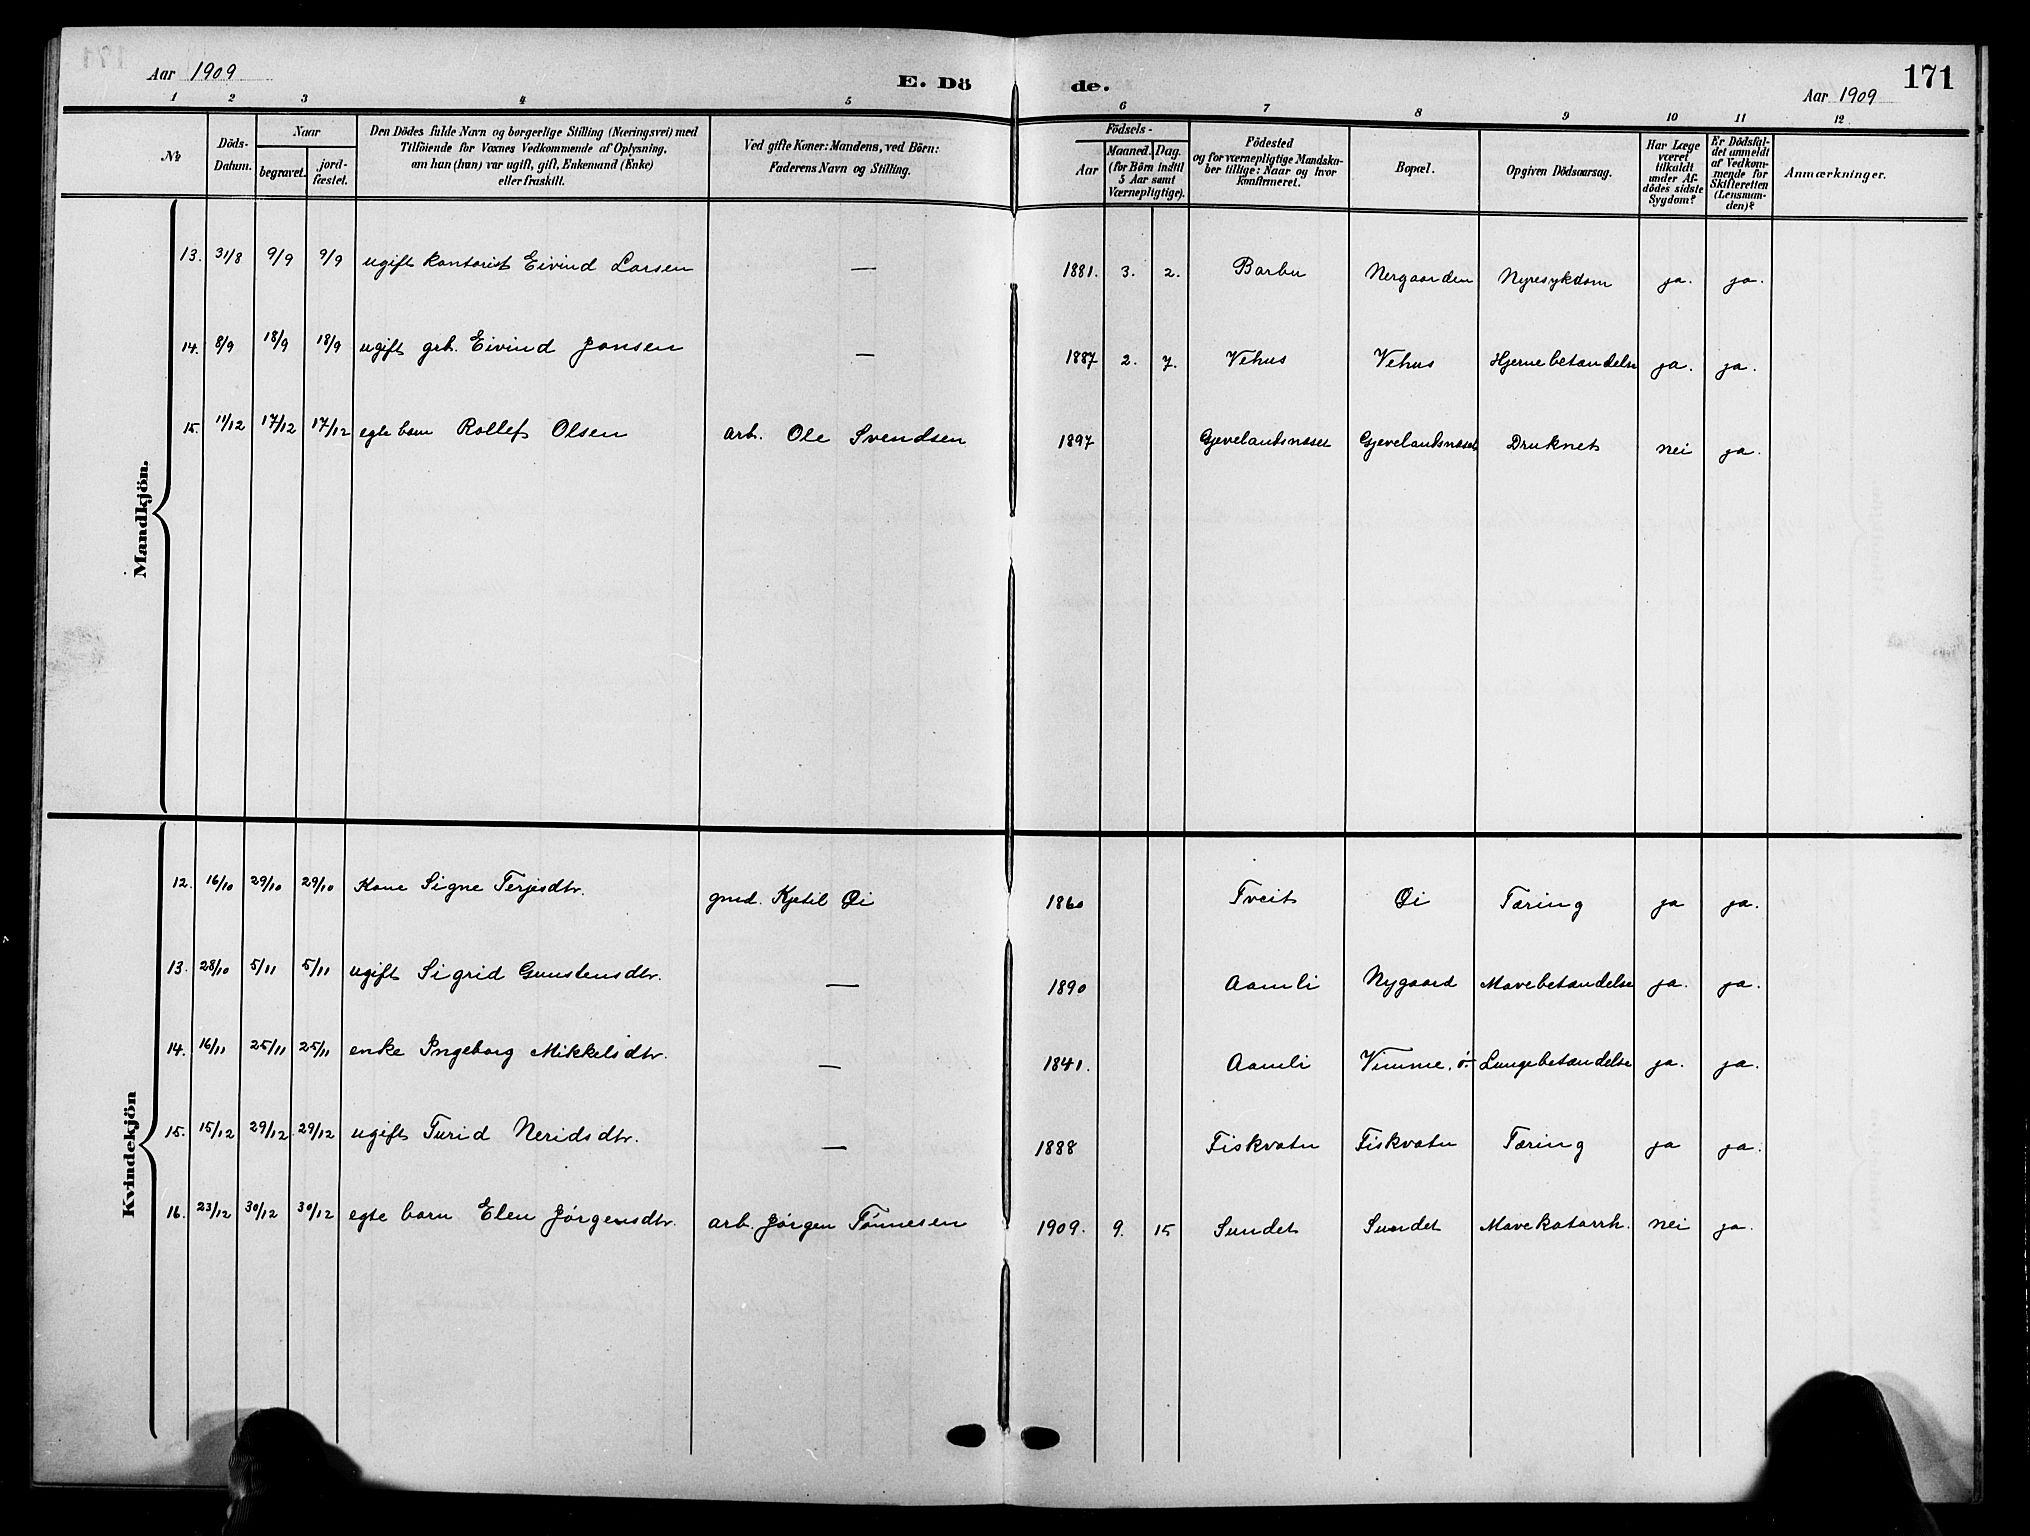 Aar 1909
E. Dö de.
171
Aar 1909
1 2 3 4 5 6 7 8 9 10 11 12
№
Döds-Datum.
Naar
begravet.
jord-fæstet.
Den Dödes fulde Navn og borgerlige Stilling (Næringsvei) med
Tilföiende for Voxnes Vedkommende af Oplysning,
om hun (han) var ugift, gift, Enkemand (Enke)
eller fraskilt.
Ved gifte Koner: Mandens, ved Börn:
Faderens Navn og Stilling.
Födsels-
Aar
Maaned. Dag.
(for Börn indtil
5 Aar samt
Værnepligtige).
Födested
og for værnepligtige Mandska-
ber tillige: Naar og hvor
konfirmeret.
Bopæl.
Opgiven Dödsaarsag.
Har Læge
været
tilkaldt
under Af-
dödes sidste
Sygdom?
Er Dödsfal-
det anmeldt
af Vedkom-
mende for
Skifteretten
(Lensman-
den)?
Anmærkninger.
Mandkjön.
13. 31/8 9/9 9/9 ugift kontorist Eivind Larsen — 1881. 3. 2. Barbu Nergaarden Nyresykdom ja. ja.
14. 8/9 18/9 18/9 ugift grb. Eivind Jansen — 1887 2. 7. Vehus Vehus Hjernebetændelse ja. ja.
15. 11/12 17/12 17/12 egte barn Rollef Olsen arb. Ole Svendsen 1897 Gjevelandsnæset Gjevelandsnæset Druknet nei ja.
Kvindekjön
12. 16/10 29/10 29/10 Kone Signe Terjesdtr. gmd. Kjetil Øi 1860 Tveit Øi Tæring ja ja.
13. 28/10 5/11 5/11 ugift Sigrid Gunstensdtr. — 1890 Aamli Nygaard Mavebetændelse ja. ja.
14. 16/11 25/11 25/11 enke Ingeborg Mikkelsdtr. — 1841. Aamli Vimme, ö. Lungebetændelse ja. ja.
15. 15/12 29/12 29/12 ugift Turid Neridsdtr. — 1888 Fiskvatn Fiskvatn Tæring ja ja.
16. 23/12 30/12 30/12 egte barn Elen Jørgensdtr. arb. Jørgen Tønnesen 1909. 9. 15 Sundet Sundet Mavekatarrh. nei ja.